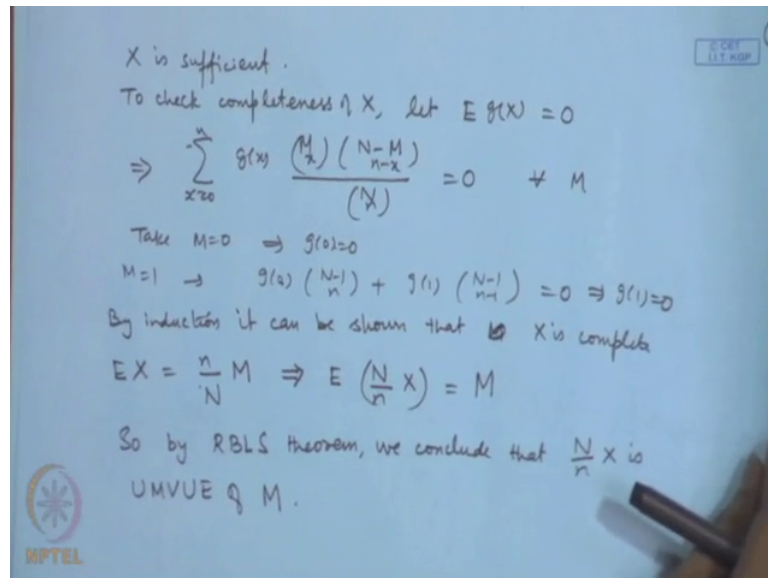 X is sufficient.
To check completeness of X, let E g(X) = 0
⇒ \sum_{x=0}^{n} g(x) \frac{\binom{M}{x} \binom{N-M}{n-x}}{\binom{N}{n}} = 0 ∀ M
Take M=0 ⇒ g(0)=0
M=1 → g(0) \binom{N-1}{n} + g(1) \binom{N-1}{n-1} = 0 ⇒ g(1)=0
By induction it can be shown that X is complete
EX = \frac{n}{N} M ⇒ E (\frac{N}{n} X) = M
So by RBLS theorem, we conclude that \frac{N}{n} X is
UMVUE of M.
© CET
I.I.T. KGP
NPTEL